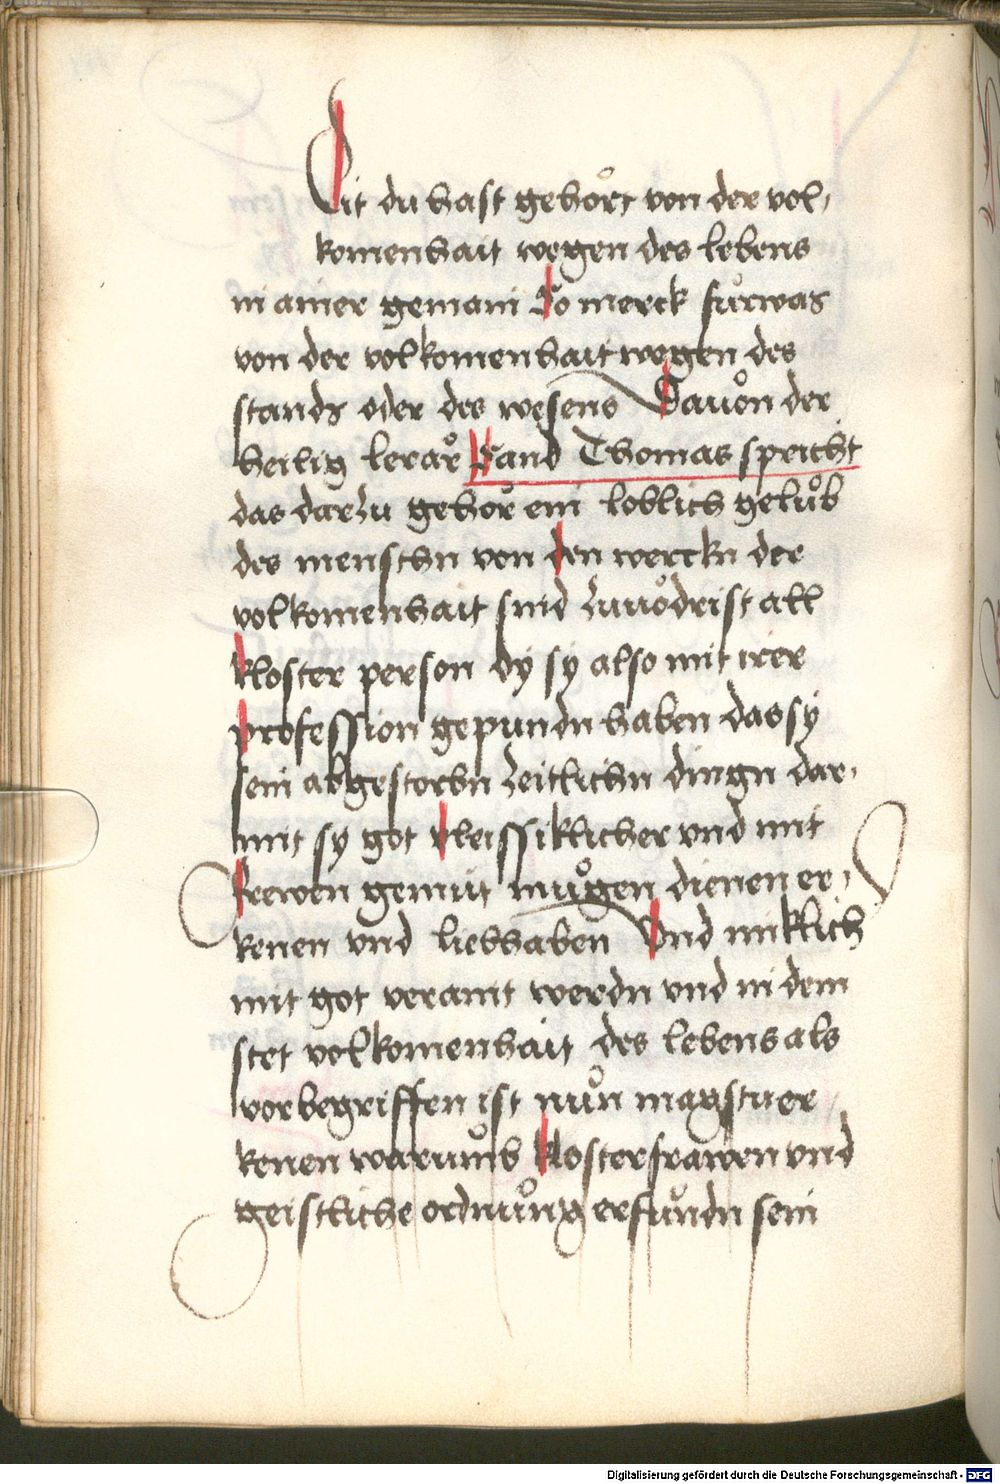 Sit du hast gehört von der vol,
komenhait wegen des lebens
in ainer gemain So merck fůrwas
von der volkomenhait wegen des
stands oder des wesens Dauon der
heilig lerär Sand Thomas spricht
das darzu gehör ein loblich gelůb
des menschn von den werckn der
volkomenhait sind zuuödrist all
kloster person dÿ sy also mit irer
profession gepundn haben das sÿ
sein abgestorbn zeitlichn dingn dar,
mit sy got vleissiklicher vnd mit
frewen gemüt mügen dienen er,
kenen vnd liebhaben Vnd inniklich
mit got veraint werdn vnd in dem
stet volkomenhait des lebens als
vor begriffen ist nůn magstu er
kenen warůmb klosterfrawen vnd
geistliche ordnůng erfůndn sein
Digitalisierung gefördert durch die Deutsche Forschungsgemeinschaft - DFG